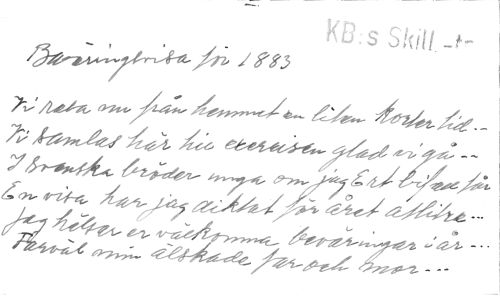 KB:s Skill. -t-
Beväringsvisa för 1883
Vi resa nu från hemmet en liten korter tid --
Vi samlas här hit exercisen glad vi gå --
I Svenska bröder unga om jag Ert bifall får
En visa har jag diktat för året attitre ---
Jag hälsar er välkomna beväringar i år ---
Farväl min älskade far och mor ---